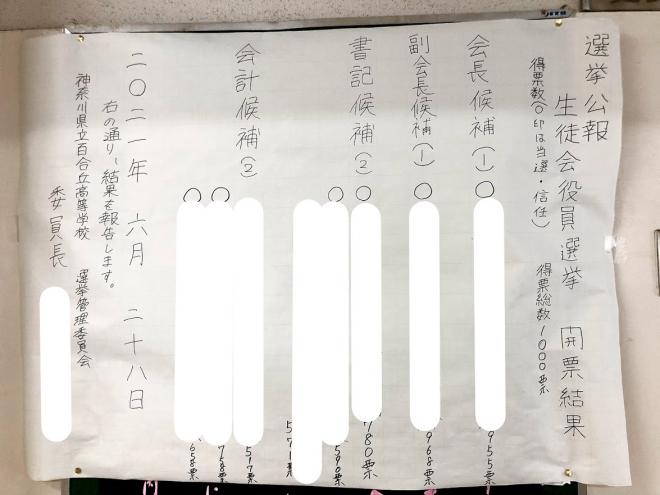 選挙公報
生徒会役員選挙 開票結果
得票数(〇印は当選・信任) 得票総数1000票
会長候補(1) 〇 955票
副会長候補(1) 〇 968票
書記候補(2) 〇 780票
〇 590票
571票
会計候補(2) 517票
〇 758票
〇 658票
二〇二一年 六月 二十八日
右の通り、結果を報告します。
神奈川県立百合丘高等学校 選挙管理委員会
委員長